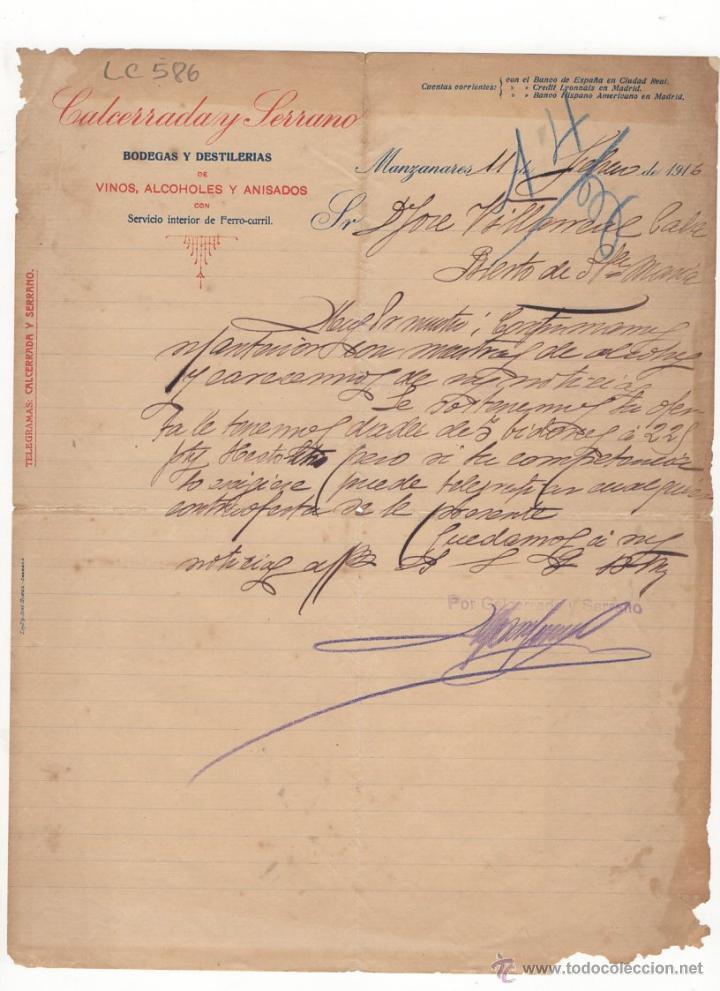 LC 586
con el Banco de España en Ciudad Real.
Cuentas corrientes: » » Credit Lyonnais en Madrid.
» » Banco Hispano Americano en Madrid.
Calcerrada y Serrano
BODEGAS Y DESTILERIAS
DE
VINOS, ALCOHOLES Y ANISADOS
CON
Servicio interior de Ferro-carril.
Manzanares 11 de Febrero de 1916
Sr D Jose Villarreal
Puerto de Sta Maria
TELEGRAMAS: CALCERRADA Y SERRANO.
Muy Sr nuestro: Confirmamos
n/ anterior con muestras de alcohol
y carecemos de sus noticias
Le sostenemos la ofer
ta le tenemos dada de 5 bidones á 225
pts Hectolitro pero si la competencia
lo exigiese puede telegrafiar cualquier
contraoferta se le presente
Quedamos á sus
noticias
Por Calcerrada y Serrano
www.todocoleccion.net